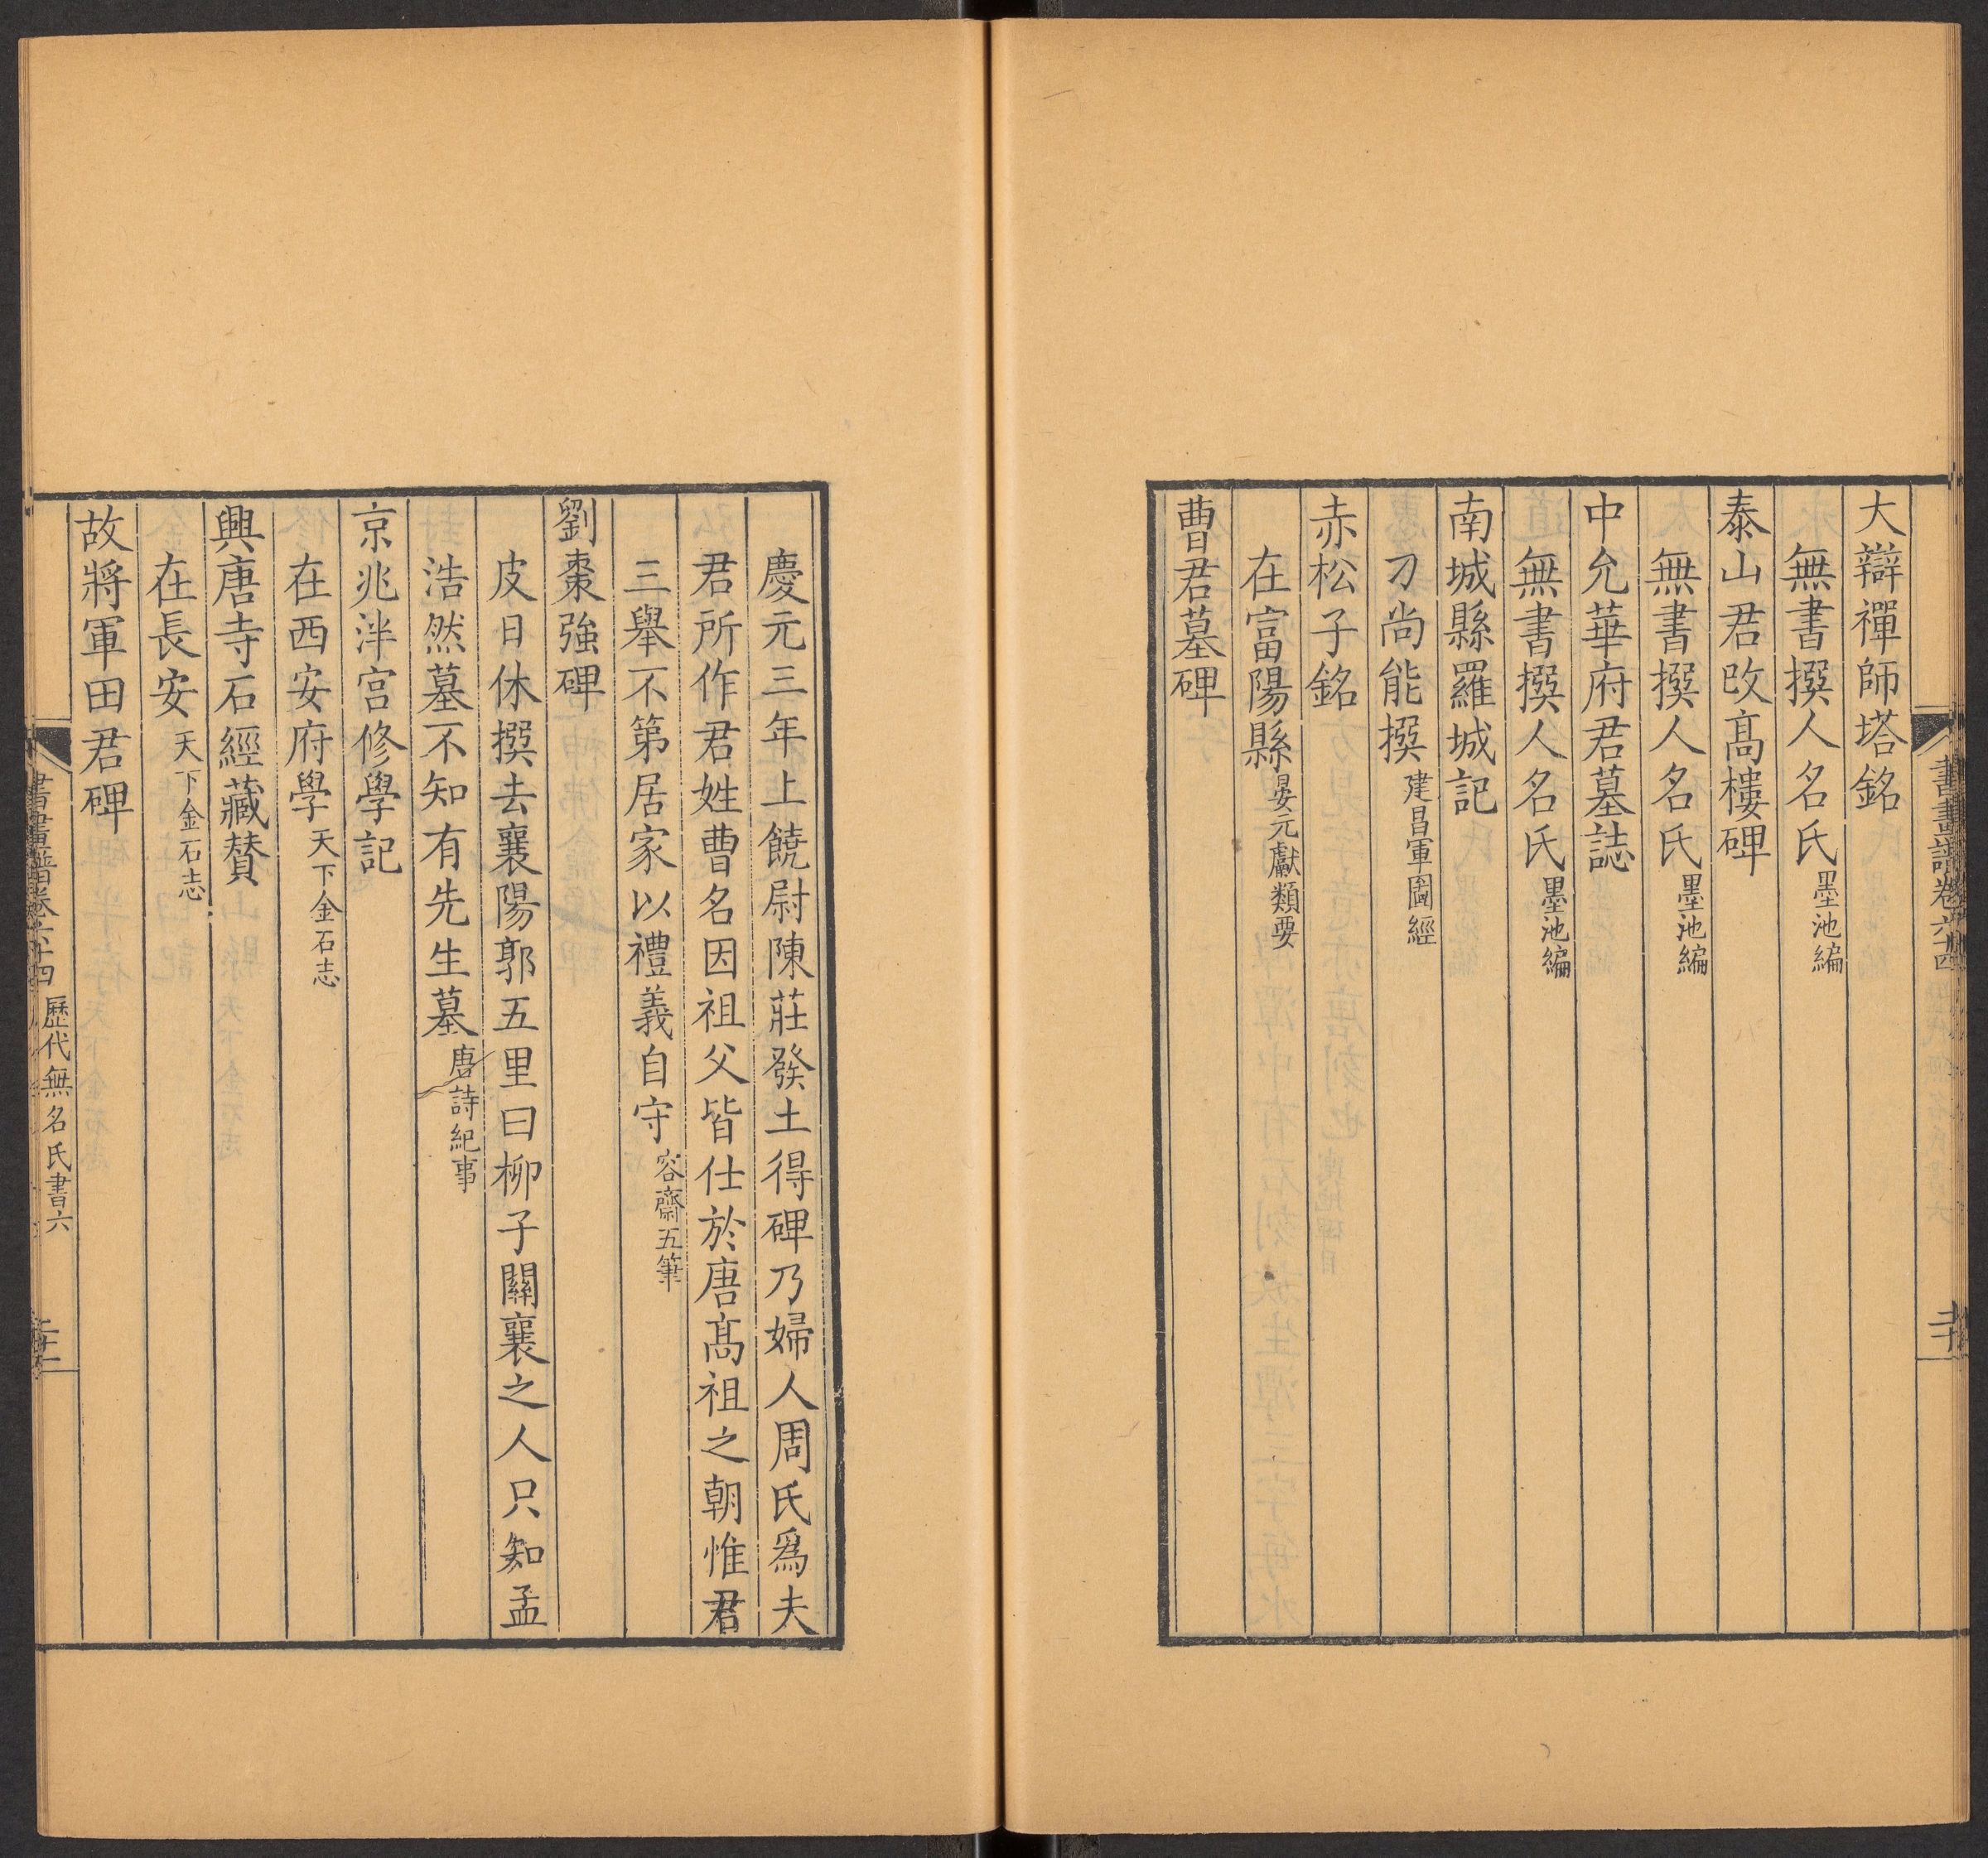 大辯禪師塔銘
無書撰人名氏墨池編
泰山君改髙樓碑
無書撰人名氏墨池編
中允華府君墓誌
無書撰人名氏墨池編
南城縣羅城記
刁尚能撰建昌軍圖經
赤松子銘
在富陽縣晏元獻類要
曹君墓碑
慶元三年上饒尉陳莊發土得碑乃婦人周氏爲夫
君所作君姓曹名因祖父皆仕於唐髙祖之朝惟君
三舉不第居家以禮義自守容齋五筆
劉棗強碑
皮日休撰去襄陽郭五里曰柳子關襄之人只知孟
浩然墓不知有先生墓唐詩紀事
京兆泮宫修學記
在西安府學天下金石志
興唐寺石經藏賛
在長安天下金石志
故將軍田君碑
書畫譜卷六十四 歷代無名氏書六